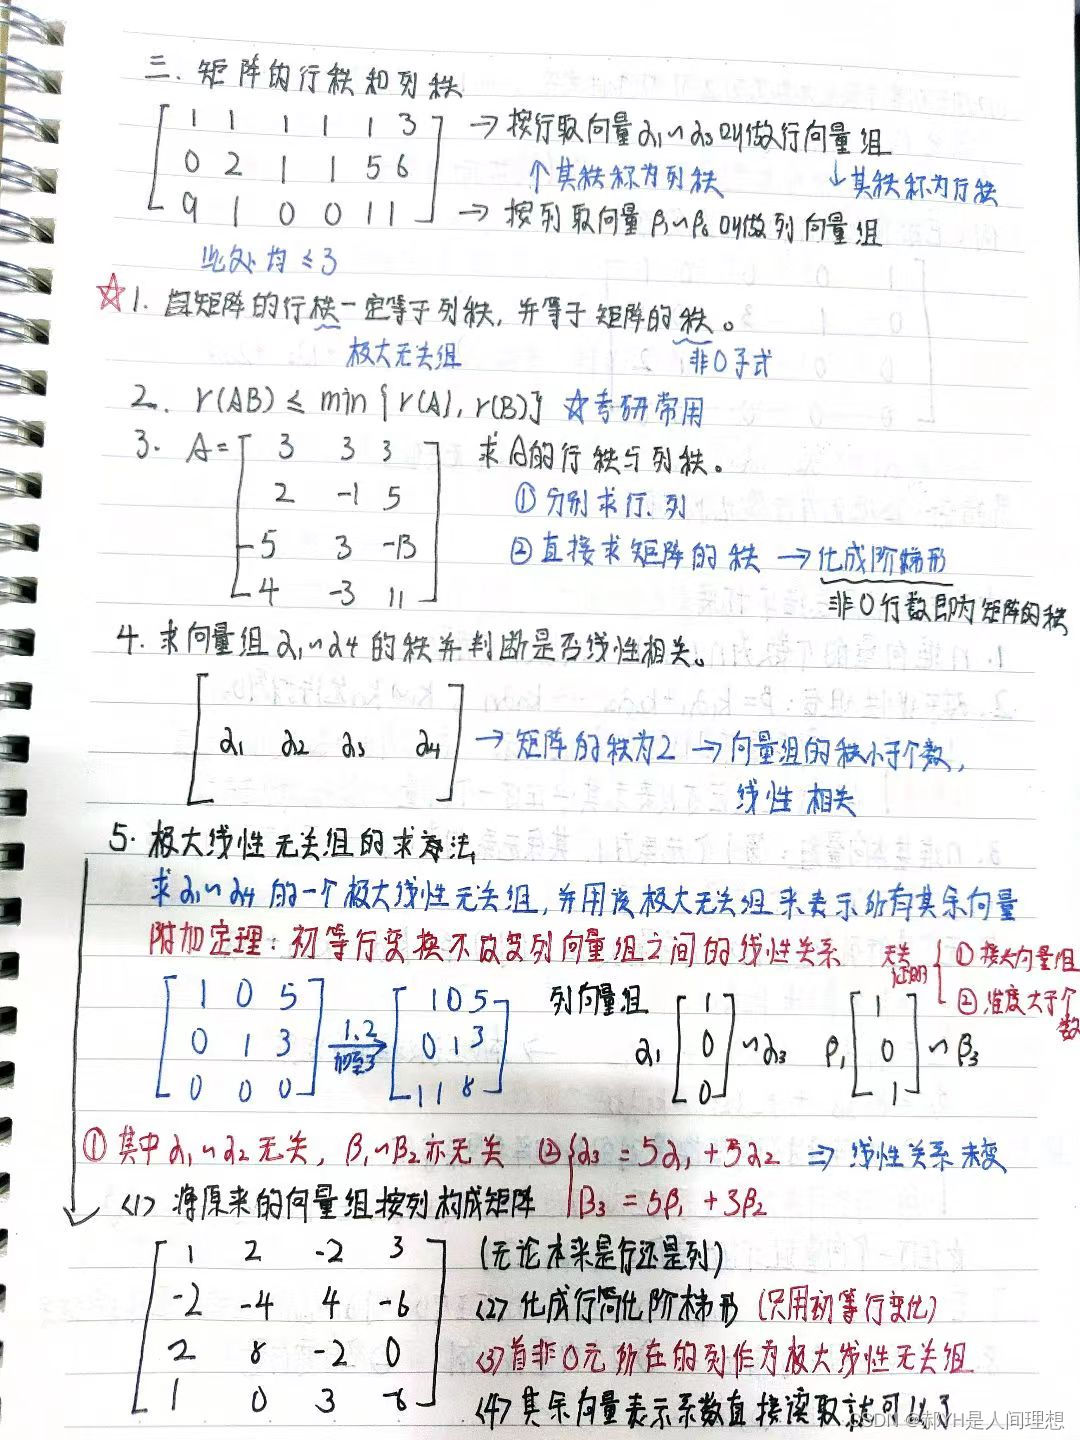 三、矩阵的行秩和列秩
1 1 1 1 1 3 → 按行取向量α1~α3叫做行向量组
0 2 1 1 5 6 ↑其秩称为列秩 ↓其秩称为行秩
9 1 0 0 1 1 → 按列取向量β1~β6叫做列向量组
此处均≤3
☆1. 矩阵的行秩一定等于列秩,并等于矩阵的秩。
极大无关组 非0子式
2. r(AB) ≤ min{r(A), r(B)} ☆考研常用
3. A= 3 3 3 求A的行秩与列秩。
2 -1 5 ①分别求行、列
-5 3 -13 ②直接求矩阵的秩 → 化成阶梯形
4 -3 11 非0行数即为矩阵的秩
4. 求向量组α1~α4的秩并判断是否线性相关。
α1 α2 α3 α4 → 矩阵的秩为2 → 向量组的秩小于个数,
线性相关
5. 极大线性无关组的求法
求α1~α4的一个极大线性无关组,并用该极大无关组来表示所有其余向量
附加定理:初等行变换不改变列向量组之间的线性关系 无关证明 ①接长向量组
②维度大于个数
1 0 5 1 0 5 列向量组 1 1
0 1 3 1.2加至3 0 1 3 α1 0 ~α3 β1 0 ~β3
0 0 0 1 1 8 0 1
①其中α1~α2无关,β1~β2亦无关 ② α3 = 5α1+3α2 ⇒ 线性关系未变
<1> 将原来的向量组按列构成矩阵 β3 = 5β1+3β2
1 2 -2 3 (无论本来是行还是列)
-2 -4 4 -6 <2> 化成行简化阶梯形 (只用初等行变化)
2 8 -2 0 <3>首非0元所在的列作为极大线性无关组
1 0 3 -6 <4>其余向量表示系数直接读取就可以了
CSDN @郝YH是人间理想